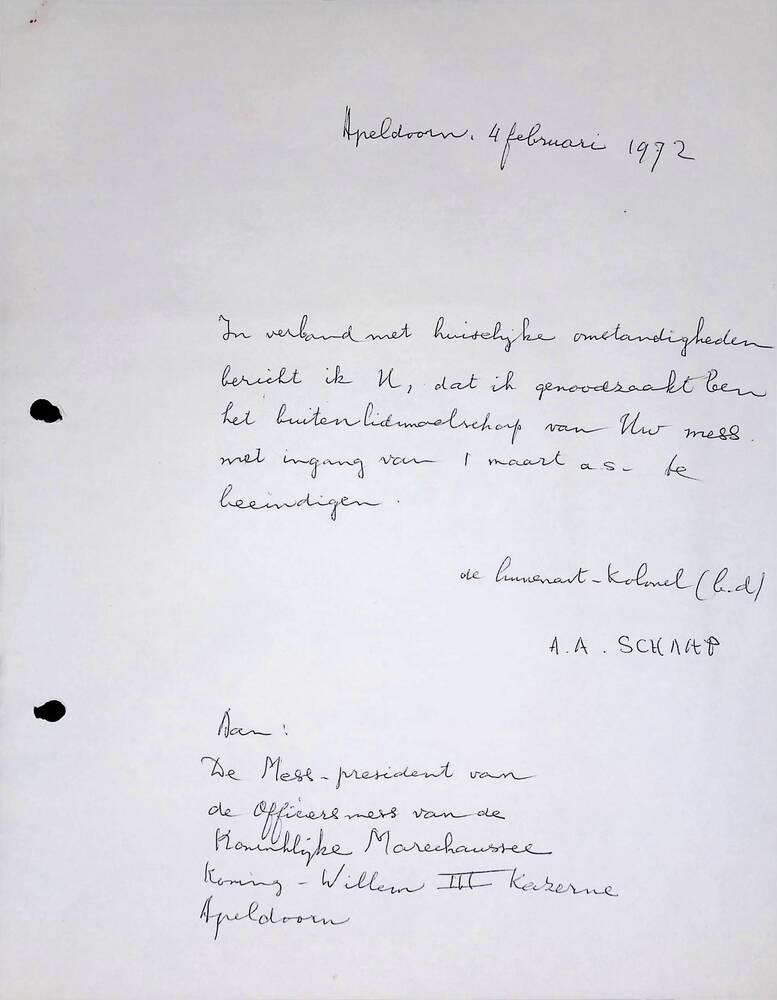 Apeldoorn, 4 februari 1972
In verband met huiselijke omstandigheden
bericht ik U, dat ik genoodzaakt ben
het buitenlidmaatschap van Uw mess
met ingang van 1 maart a.s. te
beeindigen.
de luitenant-Kolonel (b.d)
A.A. SCHAAP
Aan:
De Mess-president van
de Officiersmess van de
Koninklijke Marechaussee
Koning-Willem III Kazerne
Apeldoorn